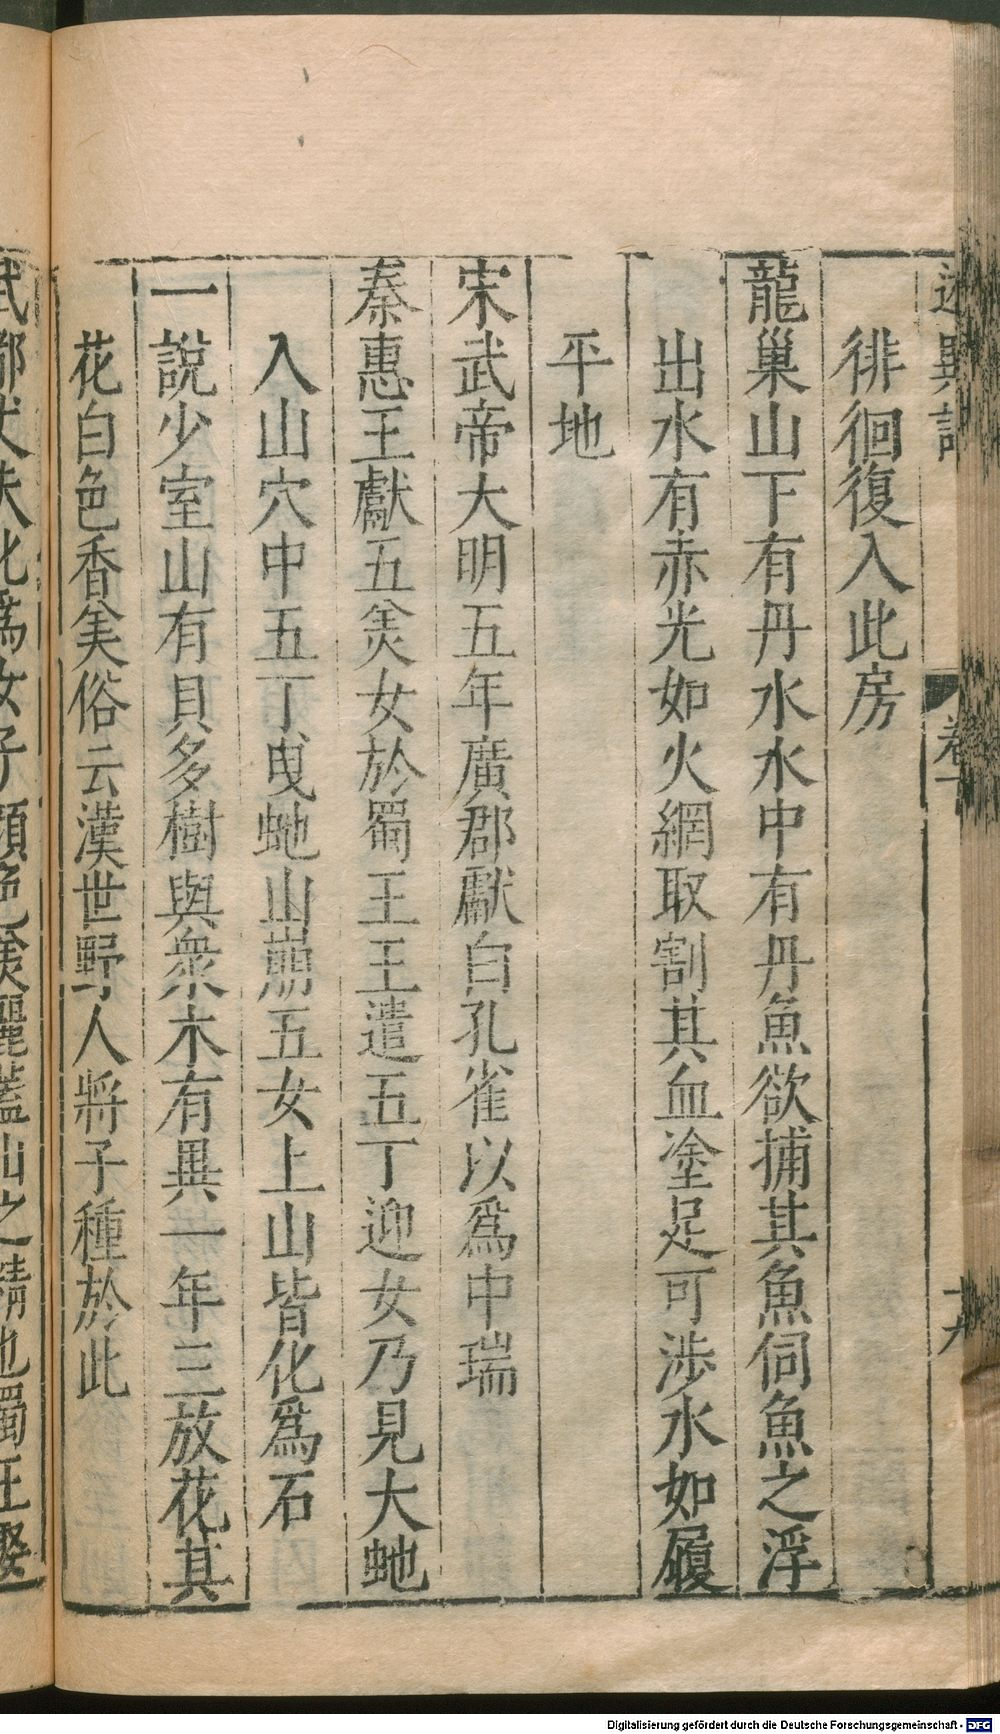 述異記 卷下 十九
徘徊復入此房
龍巢山下有丹水水中有丹魚欲捕其魚伺魚之浮
出水有赤光如火網取割其血塗足可涉水如履
平地
宋武帝大明五年廣郡獻白孔雀以爲中瑞
秦惠王獻五美女於蜀王王遣五丁迎女乃見大虵
入山穴中五丁曳虵山崩五女上山皆化爲石
一說少室山有貝多樹與衆木有異一年三放花其
花白色香美俗云漢世野人將子種於此
武都丈夫化爲女子顏色美麗蓋山之精也蜀王娶
Digitalisierung gefördert durch die Deutsche Forschungsgemeinschaft - DFG